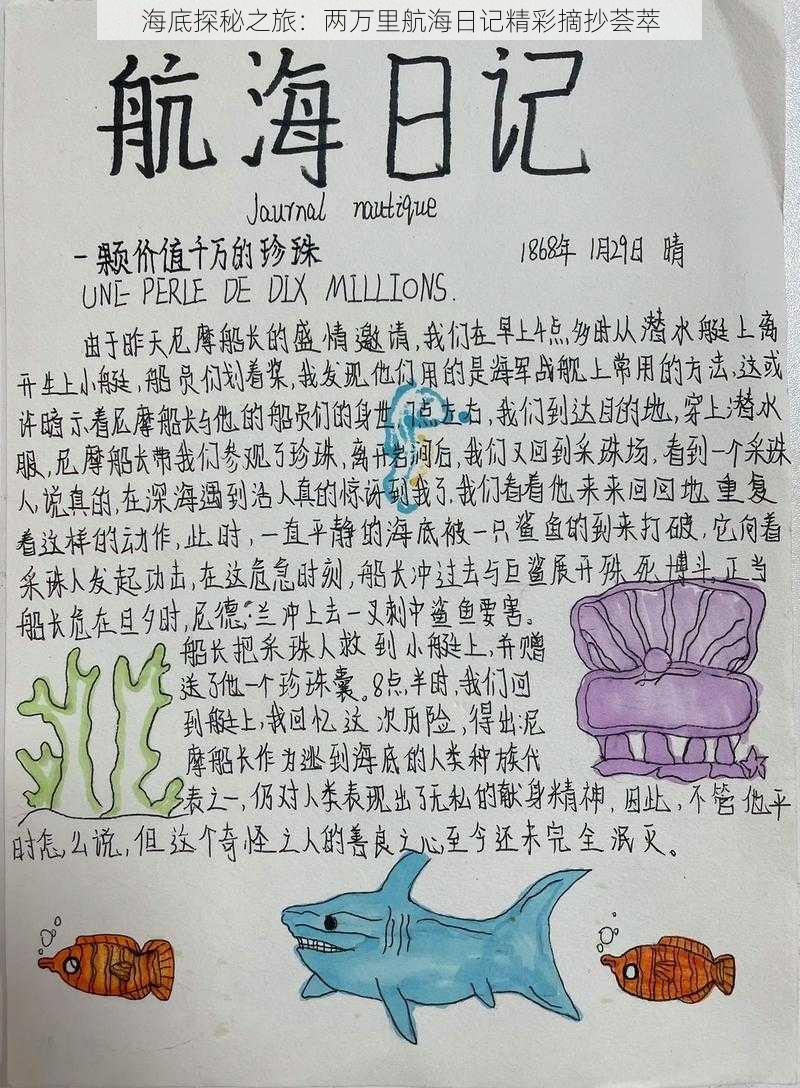 海底探秘之旅：两万里航海日记精彩摘抄荟萃
航海日记
Journal nautique
一颗价值千万的珍珠 1868年 1月29日 晴
UNE PERLE DE DIX MILLIONS.
由于昨天尼摩船长的盛情邀请,我们在早上4点多时从潜水艇上离
开坐上小艇,船员们划着桨,我发现他们用的是海军战舰上常用的方法,这或
许暗示着尼摩船长与他的船员们的身世,7点左右,我们到达目的地,穿上潜水
服,尼摩船长带我们参观了珍珠,离开岩洞后,我们又回到采珠场,看到一个采珠
人,说真的,在深海遇到活人真的惊讶到我了,我们看着他来来回回地重复
着这样的动作,此时,一直平静的海底被一只鲨鱼的到来打破,它向着
采珠人发起功击,在这危急时刻,船长冲过去与巨鲨展开殊死博斗,正当
船长危在旦夕时,尼德·兰冲上去一叉刺中鲨鱼要害。
船长把采珠人救到小艇上,并赠
送了他一个珍珠囊。8点半时,我们回
到艇上,我回忆这次历险,得出:尼
摩船长作为逃到海底的人类种族代
表之一,仍对人类表现出了无私的献身精神,因此,不管他平
时怎么说,但这个奇怪之人的善良之心至今还未完全泯灭。